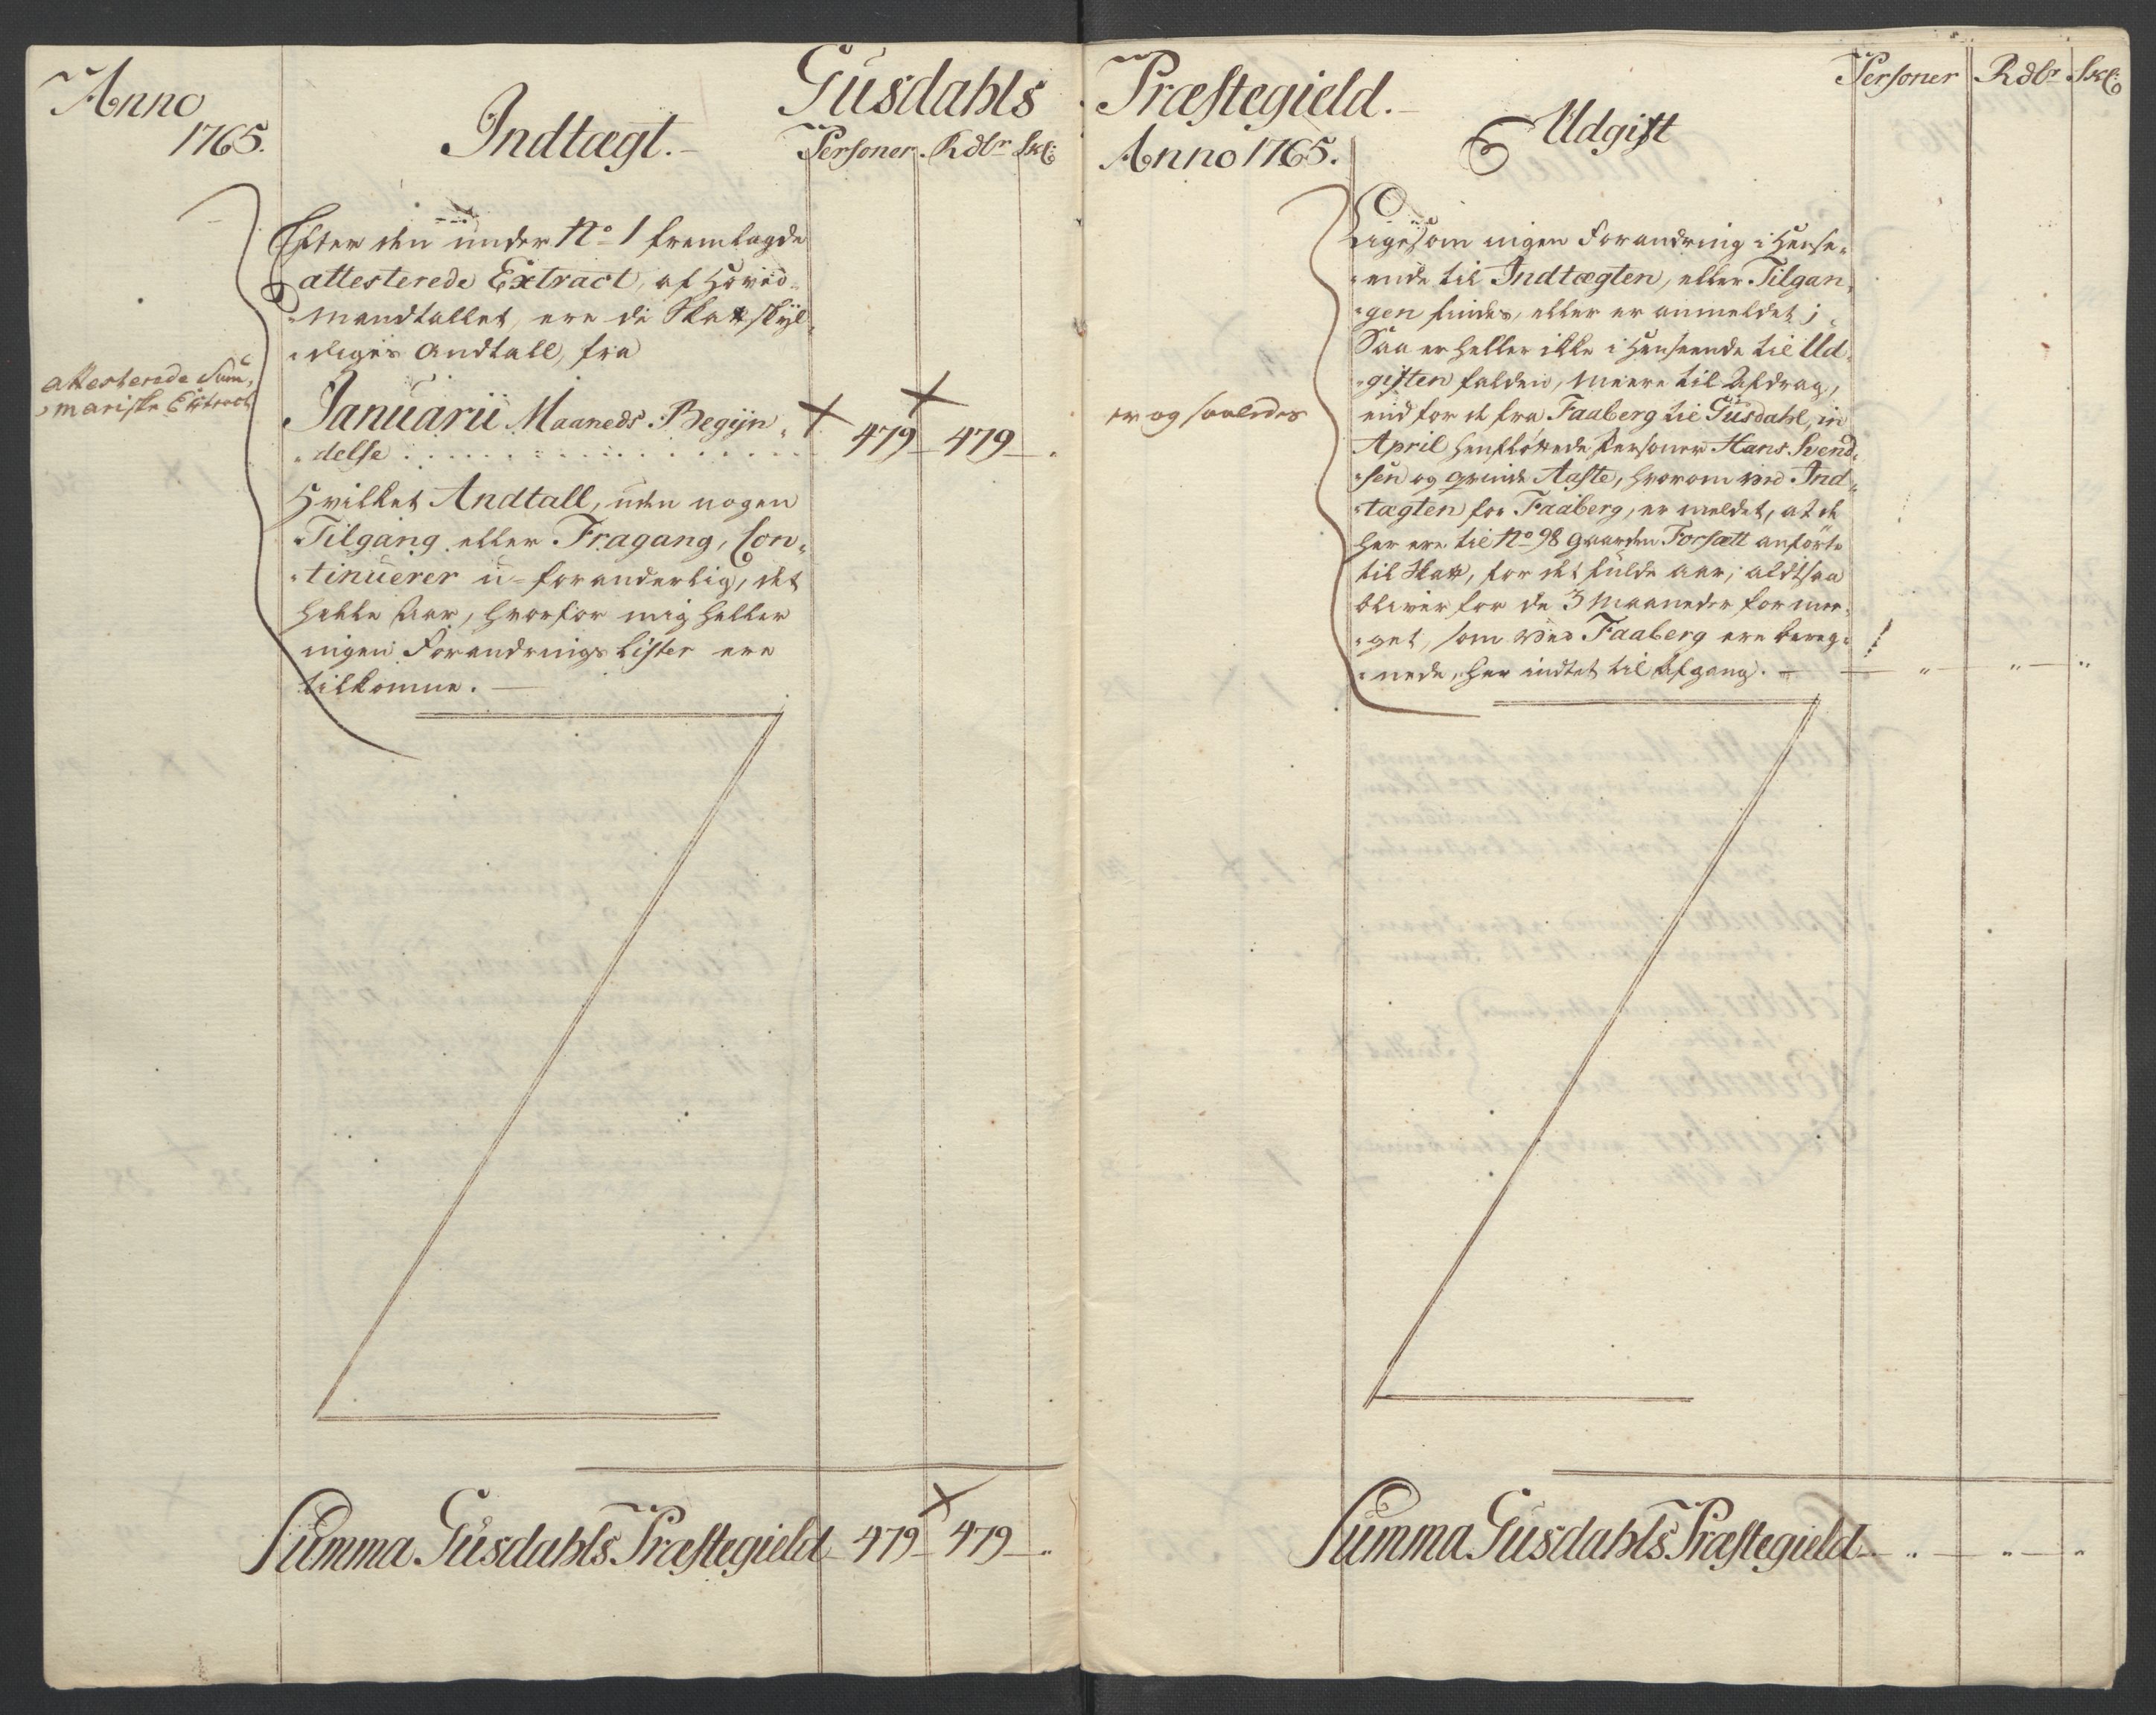 Anno
1765.
Indtægt.
Gusdahls
Personer. Rdlr Skl:
Efter den under No 1 fremlagde
attesterede Extract, af Hoved-
mandtallet, ere de Skattskyl-
diges Andtall, fra
attesterede Sum-
mariske Extract
Januarii Maaneds Begÿn-
delse 479 479
Hvilket Andtall, uden nogen
Tilgang eller Fragang, Con-
tinuerer u-foranderlig, det
heele Aar, hvorfor mig heller
ingen Forandrings Lister ere
tilkomne.
Summa Gusdahls Præstegield 479 479
Præstegield.
Anno 1765.
Udgift
Personer Rdlr Skl:
Ligesom ingen Forandring i Hense-
ende til Indtægten, eller Tilgan-
gen findes, eller er anmeldet;
Saa er heller ikke i Henseende til Ud-
giften falden, meere til Afdrag,
er og saaledes
end for de fra Faaberg til Gusdahl, in
April henfløttede Personer Hans Svend-
sen og Qvinde Aaste, hvorom ved Ind-
tægten for Faaberg, er meldet, at de
her ere til No 98 Gaarden Forsætt anførte
til Skatt, for det fulde Aar; altsaa
bliver for de 3 Maaneder for mee-
get, som ved Faaberg ere bereg-
nede, her indtet til Afgang.
Summa Gusdahls Præstegield